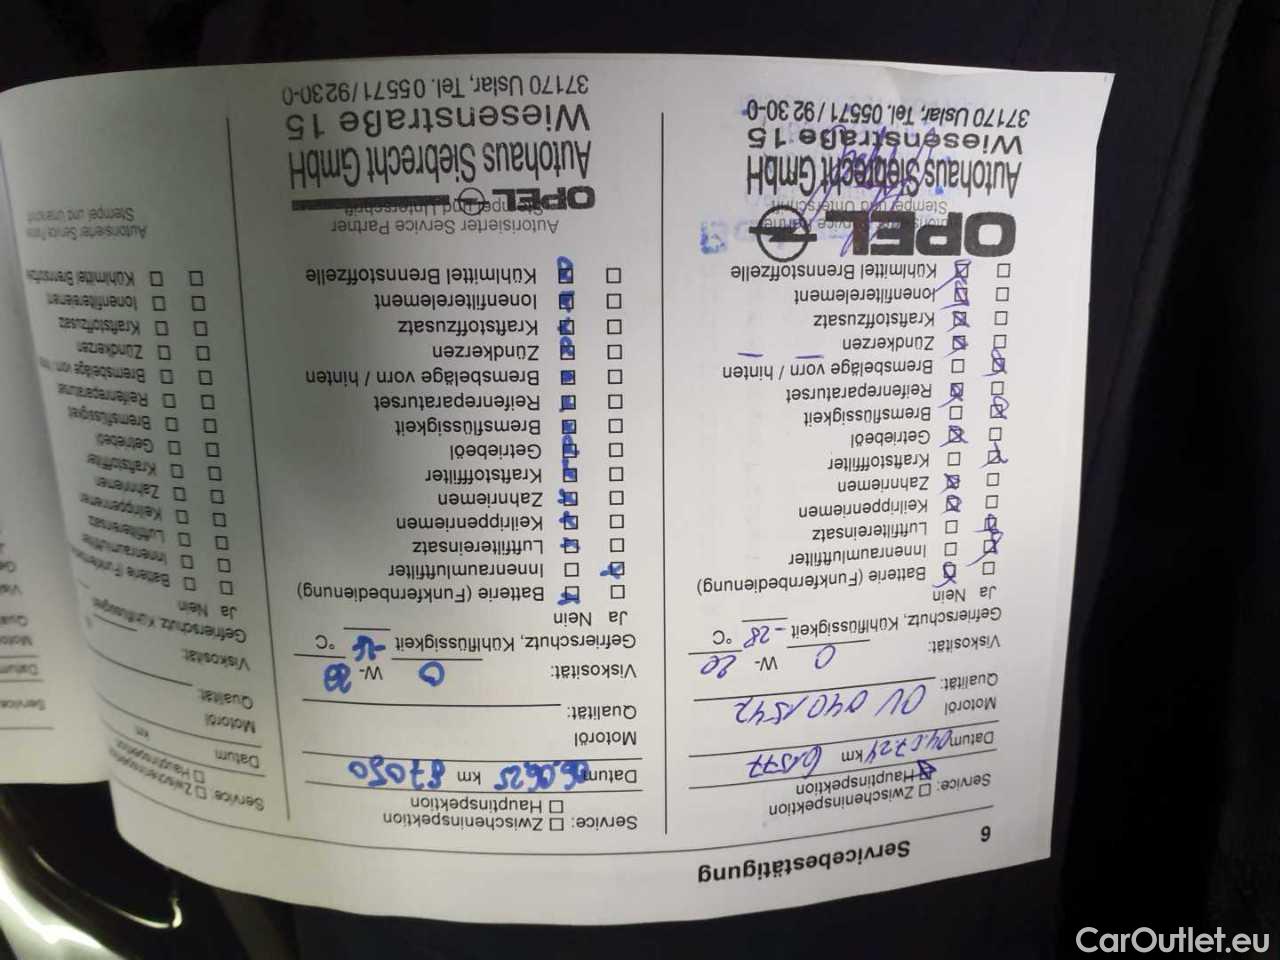 6
Servicebestätigung
Service: Zwischeninspektion
Hauptinspektion
Datum 04.07.24 km 61577
Motoröl
Qualität: OV 0401542
Viskosität: 0 W- 20
Gefrierschutz, Kühlflüssigkeit -28 °C
Ja Nein
Batterie (Funkfernbedienung)
Innenraumluftfilter
Luftfiltereinsatz
Keilrippenriemen
Zahnriemen
Kraftstofffilter
Getriebeöl
Bremsflüssigkeit
Reifenreparaturset
Bremsbeläge vorn / hinten
Zündkerzen
Kraftstoffzusatz
Ionenfilterelement
Kühlmittel Brennstoffzelle
Autorisierter Service Partner
Stempel und Unterschrift
OPEL
Autohaus Siebrecht GmbH
Wiesenstraße 15
37170 Uslar, Tel. 05571 / 92 30-0
Service: Zwischeninspektion
Hauptinspektion
Datum 06.06.25 km 87050
Motoröl
Qualität:
Viskosität: 0 W-
Gefrierschutz, Kühlflüssigkeit -26 °C
Ja Nein
Batterie (Funkfernbedienung)
Innenraumluftfilter
Luftfiltereinsatz
Keilrippenriemen
Zahnriemen
Kraftstofffilter
Getriebeöl
Bremsflüssigkeit
Reifenreparaturset
Bremsbeläge vorn / hinten
Zündkerzen
Kraftstoffzusatz
Ionenfilterelement
Kühlmittel Brennstoffzelle
Autorisierter Service Partner
Stempel und Unterschrift
OPEL
Autohaus Siebrecht GmbH
Wiesenstraße 15
37170 Uslar, Tel. 0 55 71 / 92 30-0
Service: Zwischeninspektion
Hauptinspektion
Datum km
Motoröl
Qualität:
Viskosität:
Gefrierschutz, Kühlflüssigkeit
Ja Nein
Batterie
Innenraumluftfilter
Luftfiltereinsatz
Keilrippenriemen
Zahnriemen
Kraftstofffilter
Getriebeöl
Bremsflüssigkeit
Bremsbeläge vorn
Zündkerzen
Kraftstoffzusatz
Ionenfilterelement
Kühlmittel
Autorisierter Service
Stempel und Unterschrift
Service
Datum
Motoröl
CarOutlet.eu